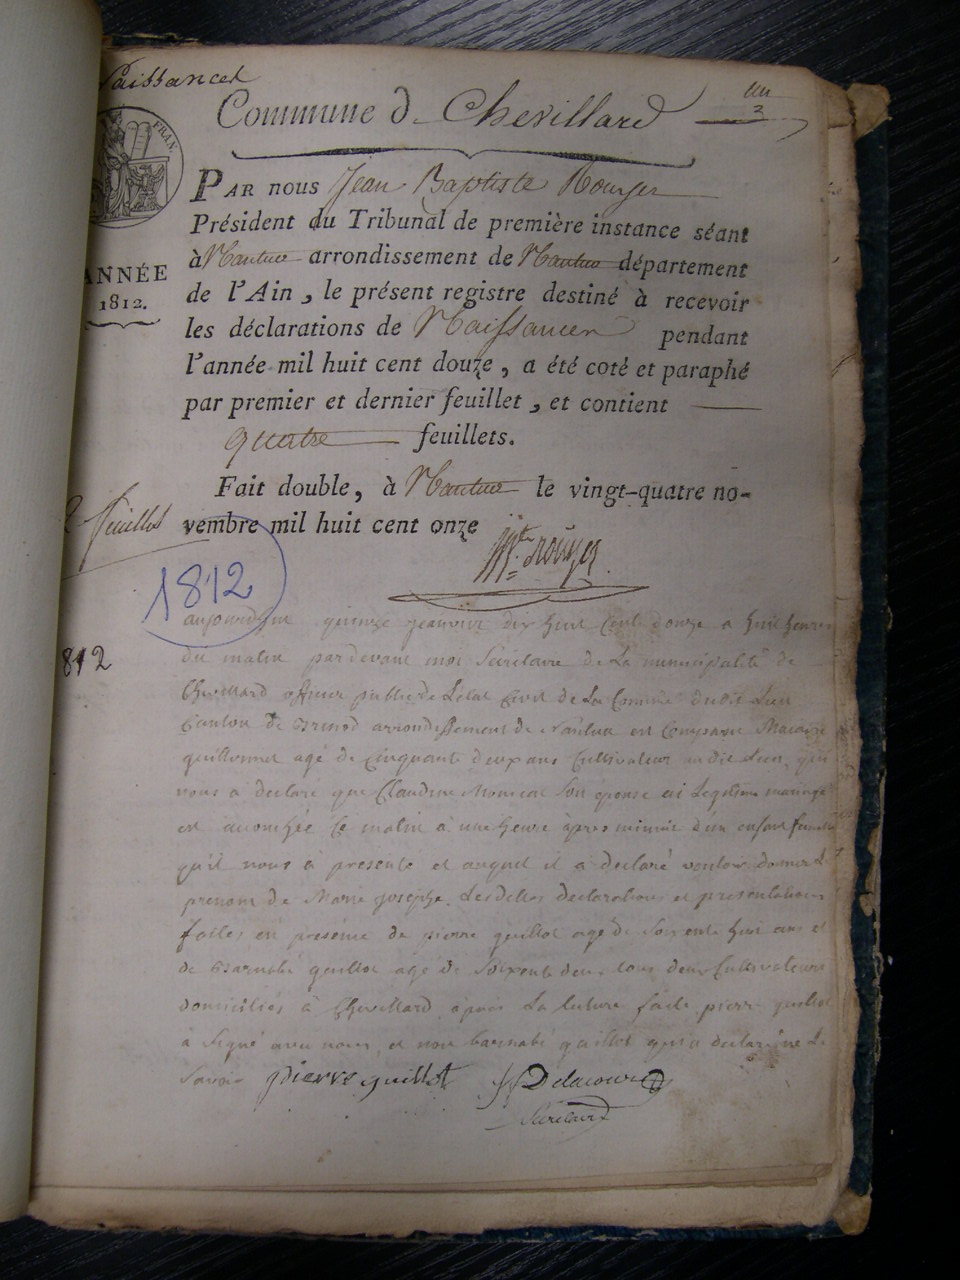 Naissances
Commune d. Chevillard
un
3
FRAN
PAR nous Jean Baptiste Rouyer
Président du Tribunal de première instance séant
à Nantua arrondissement de Nantua département
de l'Ain, le présent registre destiné à recevoir
les déclarations de Naissances pendant
l'année mil huit cent douze, a été coté et paraphé
par premier et dernier feuillet, et contient
quatre feuillets.
Fait double, à Nantua le vingt-quatre no-
vembre mil huit cent onze
ANNÉE
1812.
feuillet
Rouyer
1812
812
aujourdhui quinze janvier dix huit cent douze a huit heures
du matin pardevant moi Sécrétaire de La municipalité de
Chevillard officier public de Letat Civil de La Comune dudit Lieu
Canton de Brenod arrondissement de Nantua est Comparu
guillermet agé de cinquante deux ans Cultivateur audit Lieu, qui
nous a declaré que Claudine Son epouse en Legitime mariage
est accouchée Ce matin à une heure après minuit d'un enfant femelle
qu'il nous à presenté et auquel il a declaré vouloir donner Le
prenom de Marie josephe. Les dittes declarations et presentations
faites en présence de pierre guillot agé de Soixente huit ans et
de Barnabé guillot agé de Soixente deux tous deux Cultivateurs
domiciliés à Chevillard, après La lecture faite pierre guillot
à Signé avec nous, et non barnabé guillot qui a declaré ne Le
Savoir pierre guillot Delacour
Sécrétaire